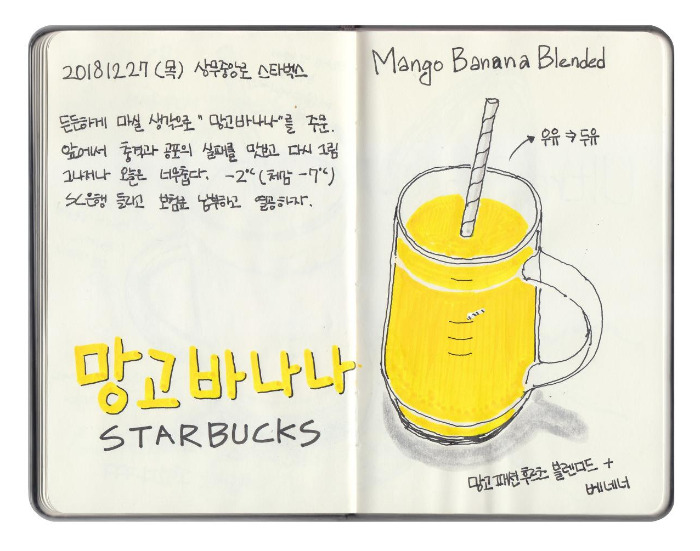 20181227(목) 상무중앙로 스타벅스
든든하게 마실 생각으로 "망고바나나"를 주문.
앞에서 충격과 공포의 실패를 맛보고 다시 그림
그나저나 오늘은 너무춥다. -2℃(체감 -7℃)
SC은행 들리고 보험료 납부하고 열공하자.
망고바나나
STARBUCKS
Mango Banana Blended
우유 → 두유
망고패션후르츠 블렌디드 +
베네너